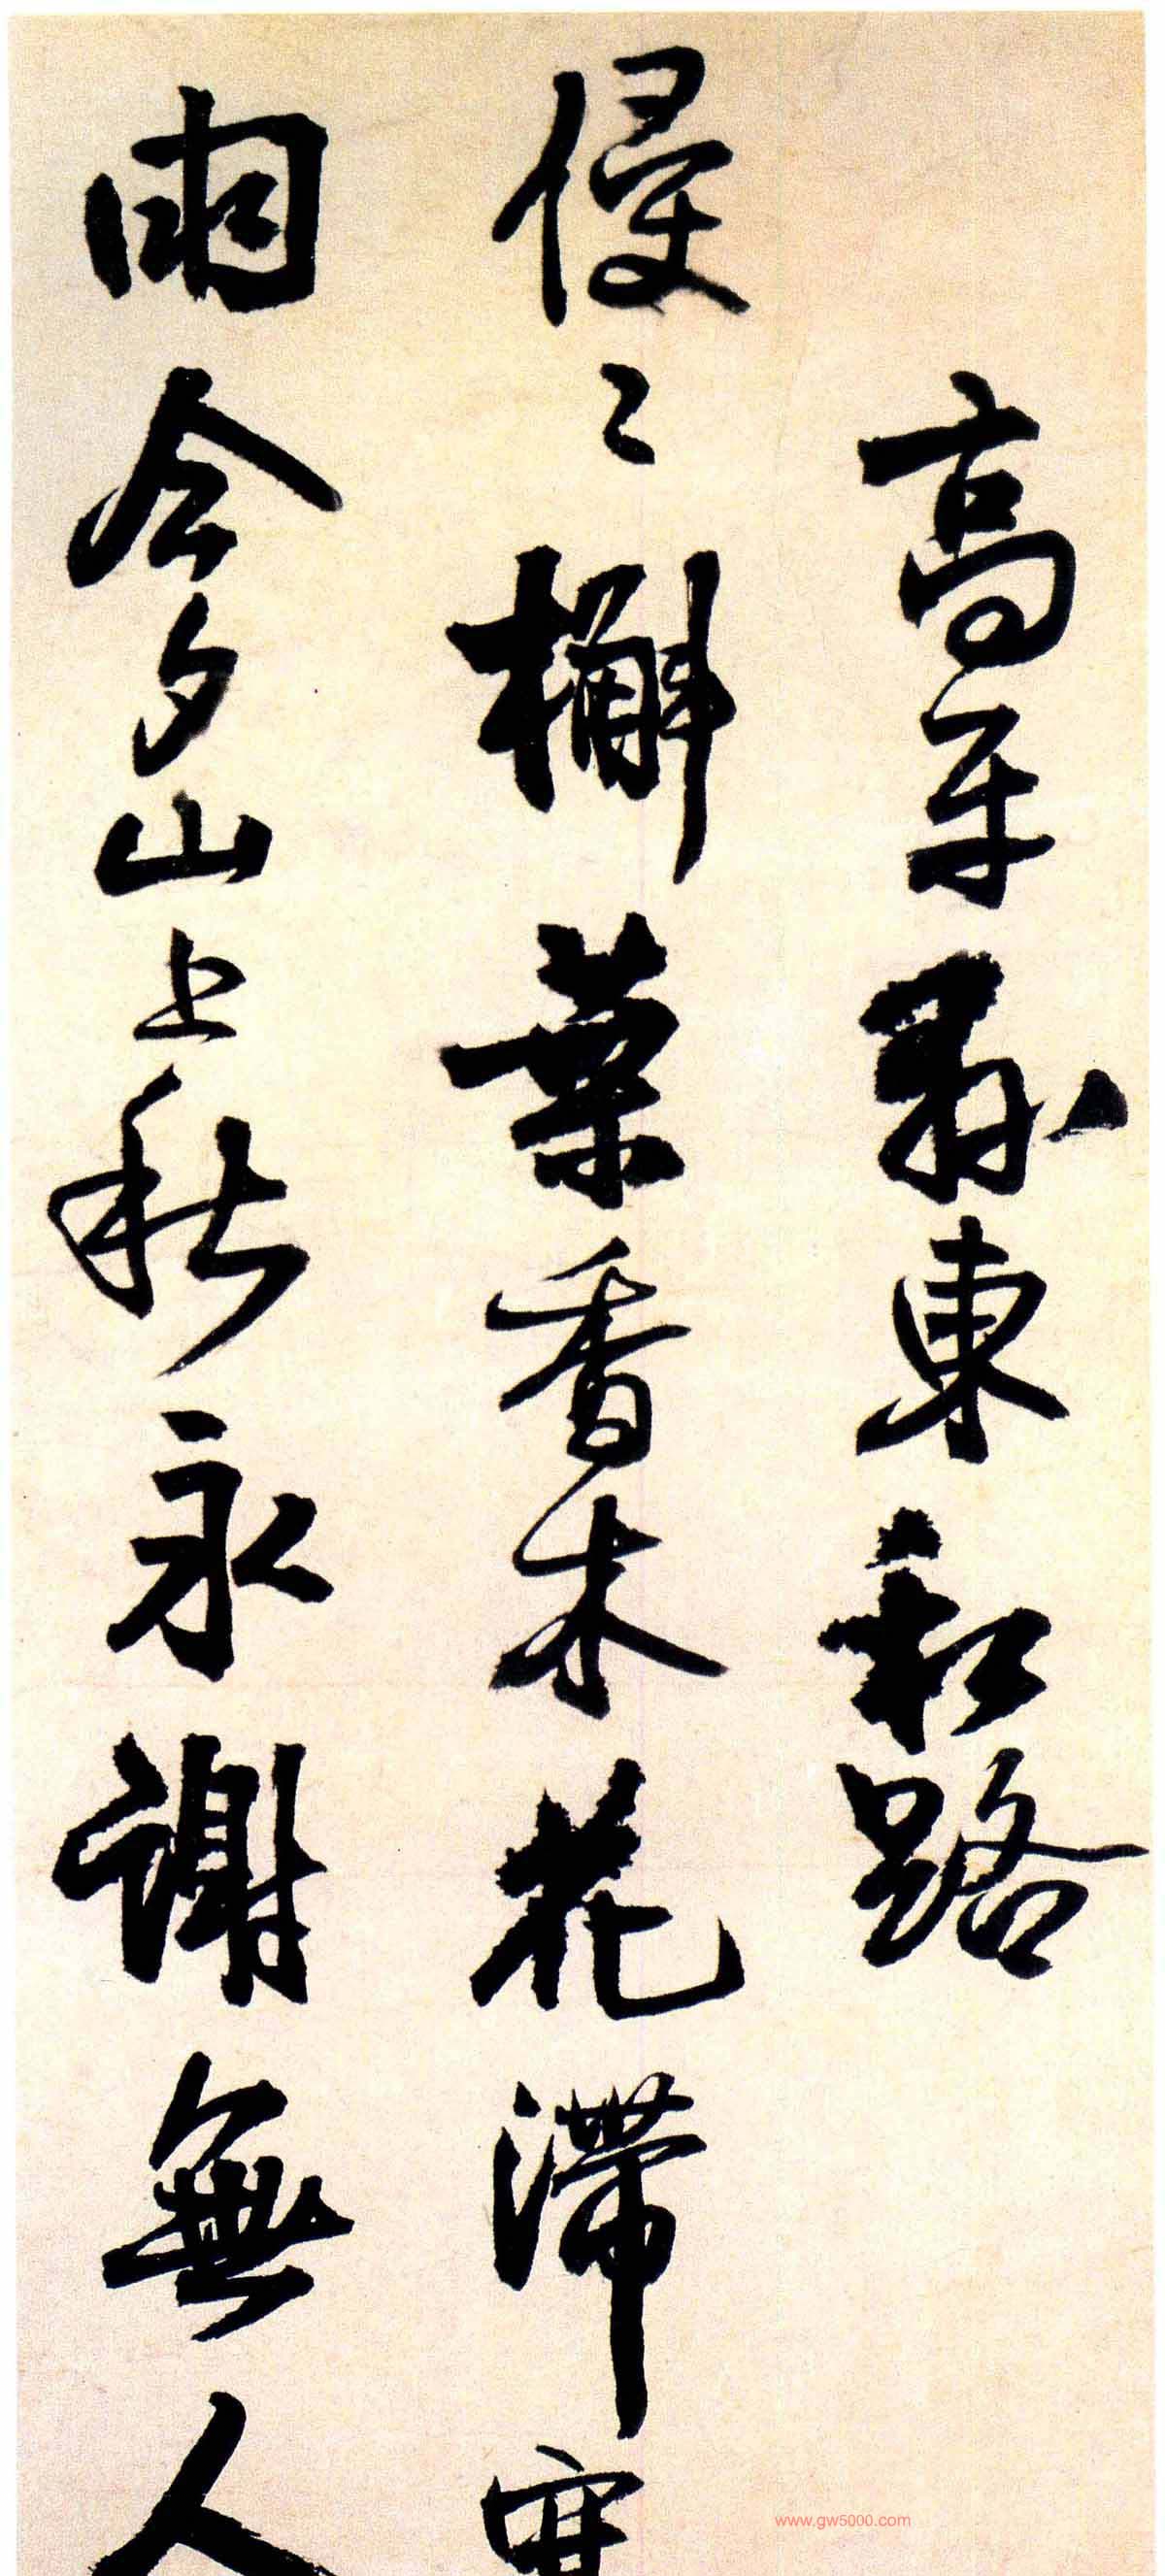 高平縣東私路
侵〻槲葉香木花滯寒
雨今夕山上秋永謝無人
www.gw5000.com